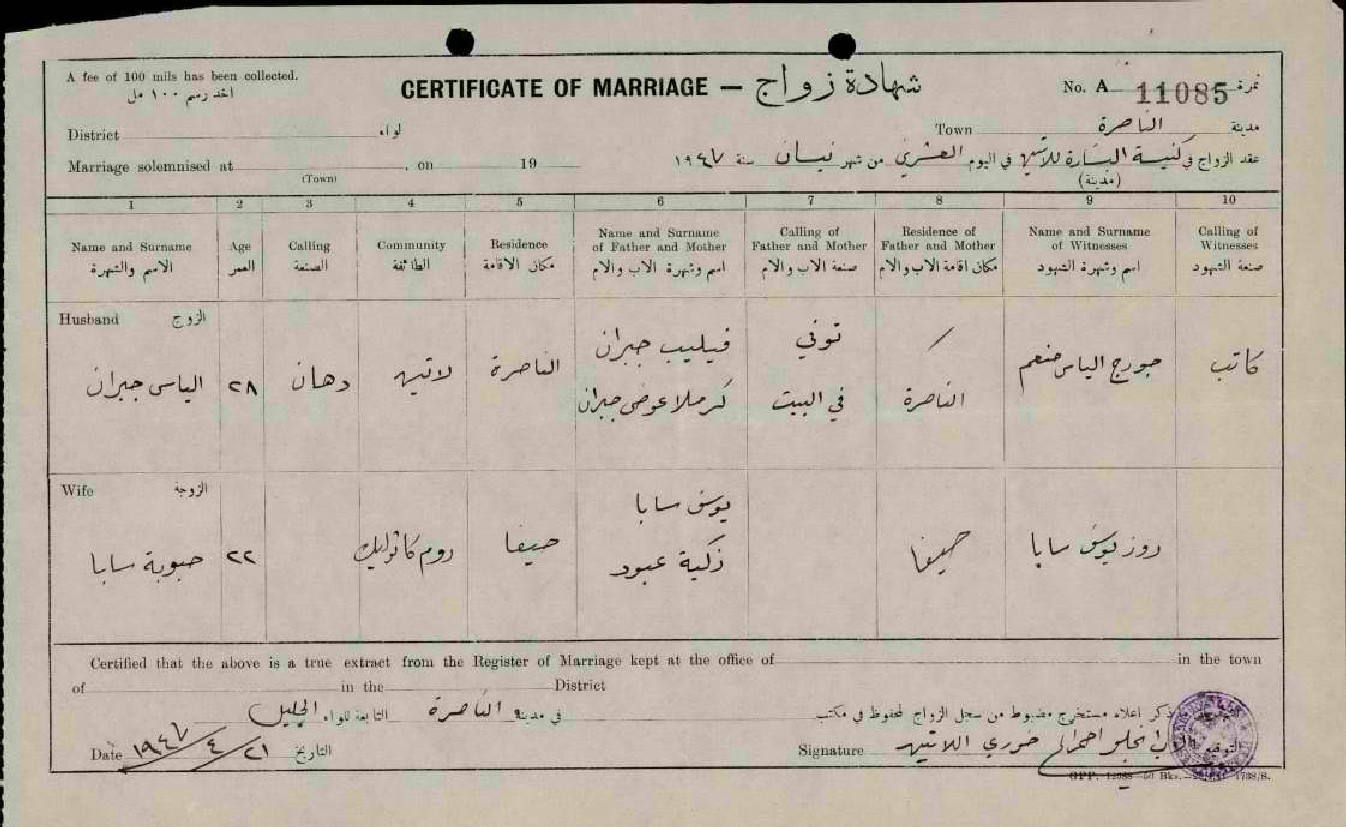 A fee of 100 mils has been collected.
اخذ رسم ١٠٠ مل
CERTIFICATE OF MARRIAGE — شهادة زواج
No. A 11085 نمرة
District لواء
Town الناصرة مدينة
Marriage solemnised at , on 19
(Town)
عقد الزواج في كنيسة البشارة للاتين في اليوم العشرين من شهر نيسان سنة ١٩٤٧
(مدينة)
1 2 3 4 5 6 7 8 9 10
Name and Surname
الاسم والشهرة
Age
العمر
Calling
الصنعة
Community
الطائفة
Residence
مكان الاقامة
Name and Surname
of Father and Mother
اسم وشهرة الاب والام
Calling of
Father and Mother
صنعة الاب والام
Residence of
Father and Mother
مكان اقامة الاب والام
Name and Surname
of Witnesses
اسم وشهرة الشهود
Calling of
Witnesses
صنعة الشهود
Husband الزوج
الياس جبران
٢٨
دهان
لاتين
الناصرة
فيليب جبران
كرملا عوض جبران
توفي
في البيت
الناصرة
جورج الياس
كاتب
Wife الزوجة
حبوبة سابا
٢٢
روم كاثوليك
حيفا
يوسف سابا
ذكية عبود
حيفا
روز يوسف سابا
Certified that the above is a true extract from the Register of Marriage kept at the office of in the town
of in the District
ذكر اعلاه مستخرج مضبوط من سجل الزواج المحفوظ في مكتب
في مدينة الناصرة التابعة للواء الجليل
Date ١٩٤٧/٤/٢١ التاريخ
Signature خوري اللاتين التوقيع